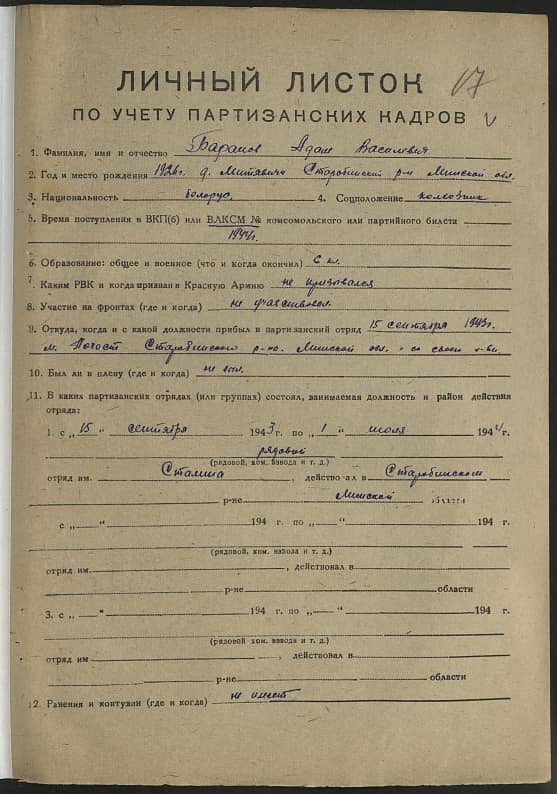 ЛИЧНЫЙ ЛИСТОК 17
ПО УЧЕТУ ПАРТИЗАНСКИХ КАДРОВ
1. Фамилия, имя и отчество Баранов Адам Василевич
2. Год и место рождения 1926г. д. Митявичи Старобинский р-н Минской обл.
3. Национальность белорус. 4. Соцположение колхозник
5. Время поступления в ВКП(б) или ВЛКСМ № комсомольского или партийного билета
1944г.
6. Образование: общее и военное (что и когда окончил) 6 кл.
7. Каким РВК и когда призван в Красную Армию не призывался
8. Участие на фронтах (где и когда) не участвовал
9. Откуда, когда и с какой должности прибыл в партизанский отряд 15 сентября 1943г.
м. Погост Старобинского р-на. Минской обл. со своего
10. Был ли в плену (где и когда) не был.
11. В каких партизанских отрядах (или группах) состоял, занимаемая должность и район действия
отряда:
1. с „15" сентября 1943 г. по „1" июля 1944 г.
рядовой
(рядовой, ком. взвода и т. д.)
отряд им. Сталина, действовал в Старобинском
р-не Минской области
с „ " 194 г. по „ " 194 г.
(рядовой, ком. взвода и т. д.)
отряд им. , действовал в
р-не области
3. с „ " 194 г. по „ " 194 г.
(рядовой, ком. взвода и т. д.)
отряд им. , действовал в
р-не области
12. Ранения и контузии (где и когда) не имеет